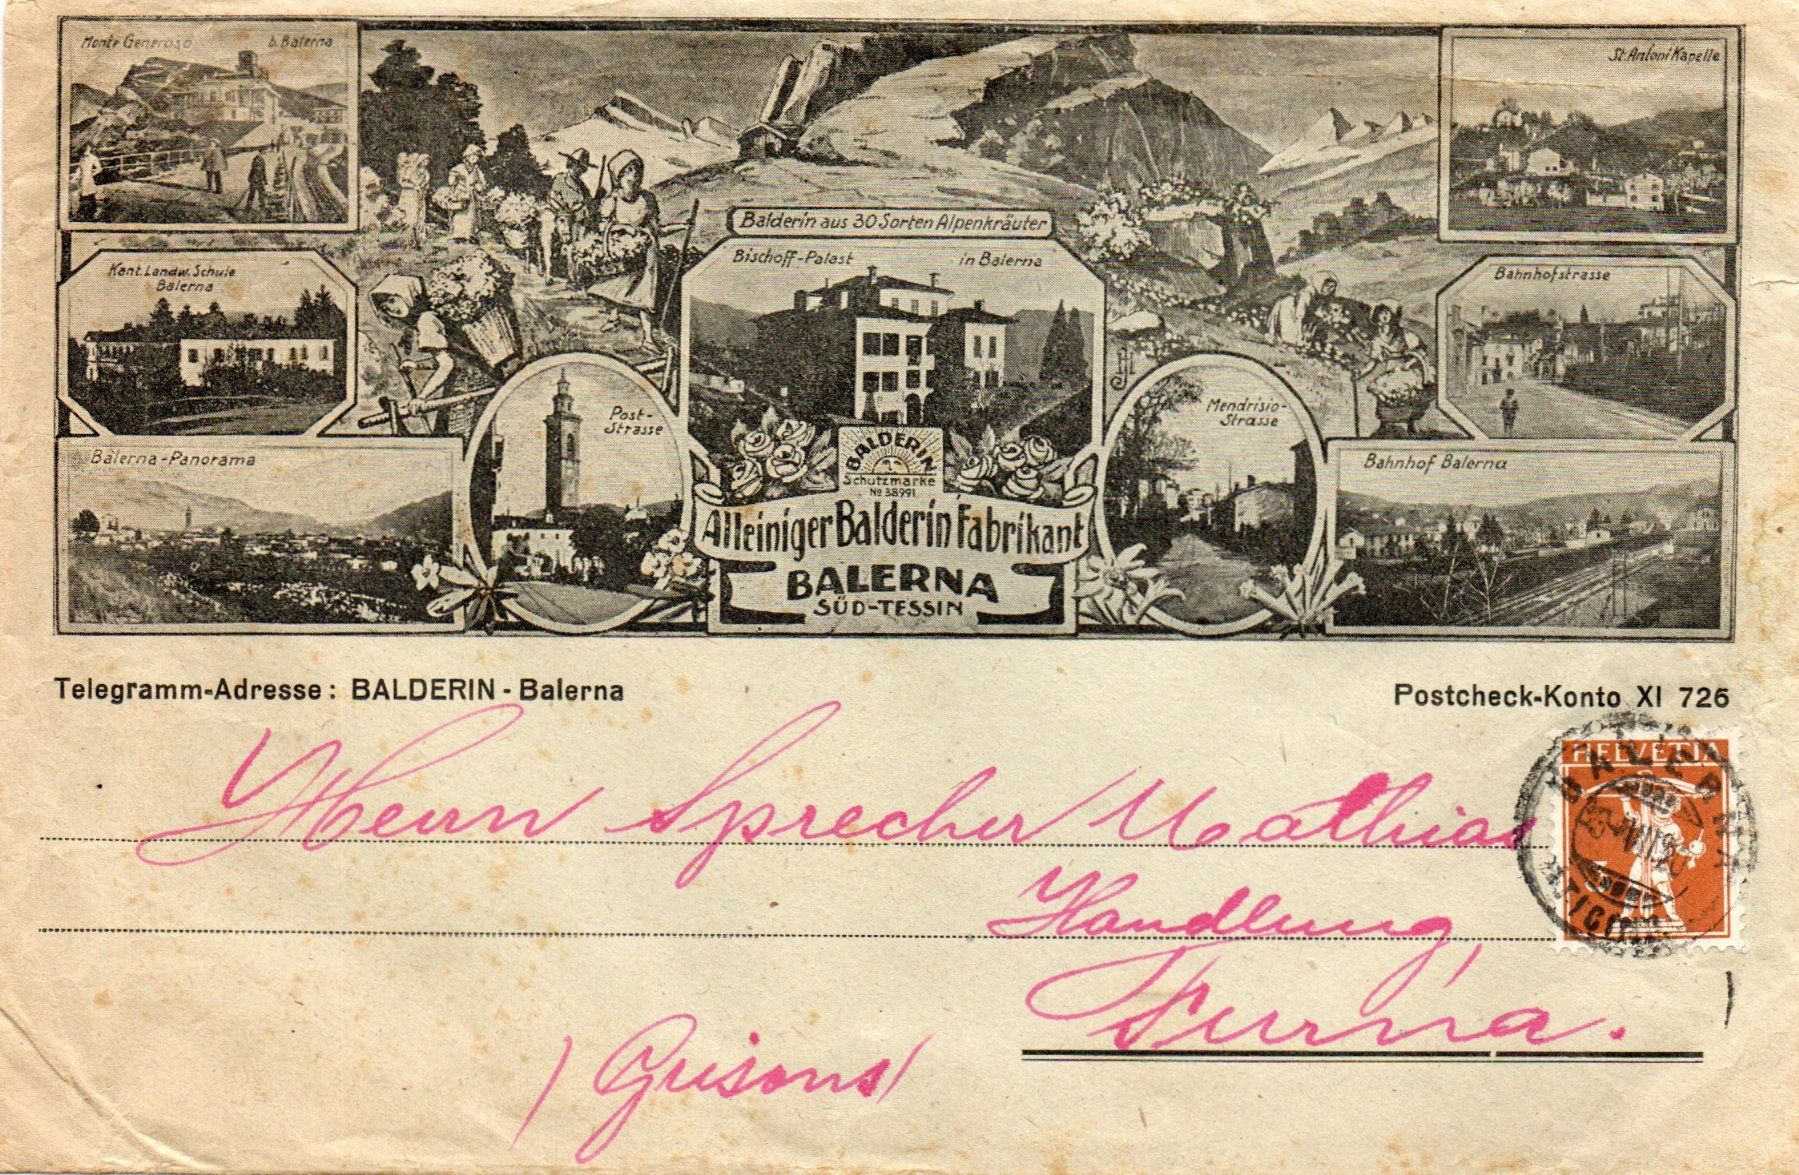 Monte Generoso b. Balerna
St. Antoni Kapelle
Balderin aus 30 Sorten Alpenkräuter
Bischoff-Palast in Balerna
Kant. Landw. Schule
Balerna
Bahnhofstrasse
Post-
Strasse
Mendrisio-
Strasse
Balerna-Panorama
Bahnhof Balerna
BALDERIN
Schutzmarke
No 38991
Alleiniger Balderin Fabrikant
BALERNA
SÜD-TESSIN
Telegramm-Adresse: BALDERIN - Balerna
Postcheck-Konto XI 726
HELVETIA
BALERNA
(TICINO)
Herrn Sprecher Mathias
Handlung,
Furna.
(Grisons)